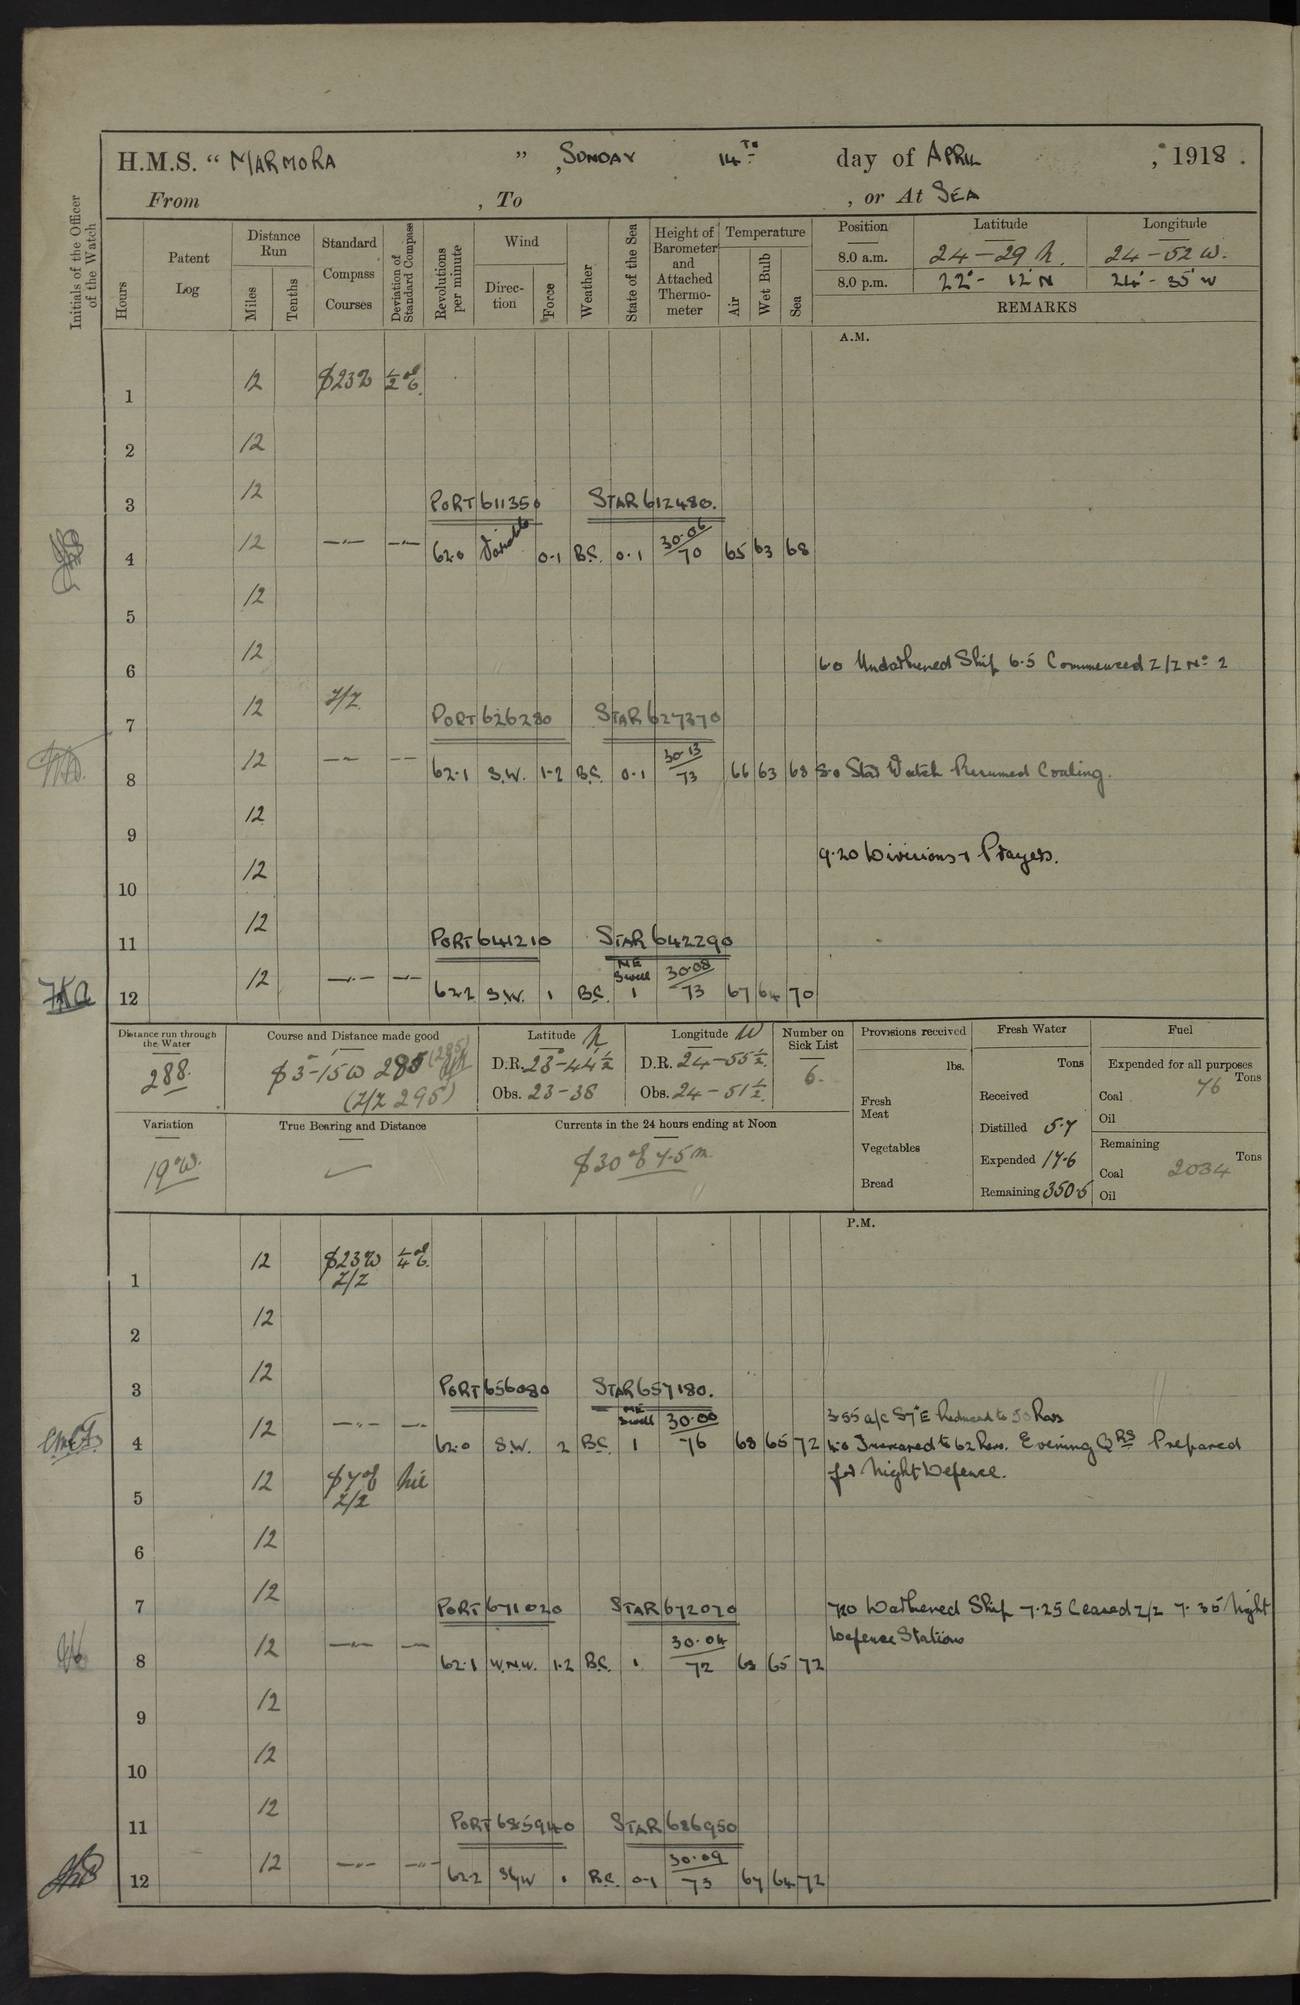 H.M.S. “ MARMORA ” , SUNDAY 14TH day of APRIL , 1918 .
From , To , or At SEA
Initials of the Officer of the Watch
Hours
Patent Log
Distance Run
Miles
Tenths
Standard Compass Courses
Deviation of Standard Compass
Revolutions per minute
Wind
Direction
Force
Weather
State of the Sea
Height of Barometer and Attached Thermometer
Temperature
Air
Wet Bulb
Sea
Position Latitude Longitude
8.0 a.m. 24–29 N. 24–52 W.
8.0 p.m. 22°– 12' N 24°– 35' W
REMARKS
A.M.
1 12 S23W ½°E.
2 12
3 12 PORT 611350 STAR 612480.
4 12 —"— —"— 62.0 Variable 0.1 B.C. 0.1 30.06/70 65 63 68
5 12
6 12 6.0 Undarkened Ship 6.5 Commenced Z/Z No 2
7 12 Z/Z PORT 626280 STAR 627370
8 12 —"— —"— 62.1 S.W. 1-2 B.C. 0.1 30.13/73 66 63 68 8.0 Star Watch Resumed Coaling.
9 12
10 12 9.20 Divisions + Prayers.
11 12 PORT 641210 STAR 642290
12 12 —"— —"— 62.2 S.W. 1 B.C. NE Swell 1 30.08/73 67 64 70
Distance run through the Water
288.
Course and Distance made good
S 3°–15' W 285
(Z/Z 295)
Latitude N
D.R. 23°–44½
Obs. 23–38
Longitude W
D.R. 24–55½
Obs. 24–51½
Number on Sick List
6.
Provisions received
lbs.
Fresh Meat
Vegetables
Bread
Fresh Water
Tons
Received
Distilled 5.7
Expended 17.6
Remaining 350.5
Fuel
Expended for all purposes
Tons
Coal 76
Oil
Remaining
Tons
Coal 2034
Oil
Variation
19°W.
True Bearing and Distance
Currents in the 24 hours ending at Noon
S 30°E 7.5 m.
P.M.
1 12 S23W Z/Z ¼°E.
2 12
3 12 PORT 656080 STAR 657180.
3.55 a/c S7°E Reduced to 50 Revs
4 12 —"— —"— 62.0 S.W. 2 B.C. NE Swell 1 30.00/76 68 65 72 4.0 Increased to 62 Revs. Evening QRS Prepared
for Night Defence.
5 12 S7°E Z/Z Nil
6 12
7 12 PORT 671020 STAR 672070 7.20 Darkened Ship 7.25 Ceased Z/Z 7.35 Night
Defence Stations
8 12 —"— —"— 62.1 W.N.W. 1.2 B.C. 1 30.04/72 68 65 72
9 12
10 12
11 12 PORT 685940 STAR 686950
12 12 —"— —"— 62.2 B.C. 0-1 30.09/73 67 64 72